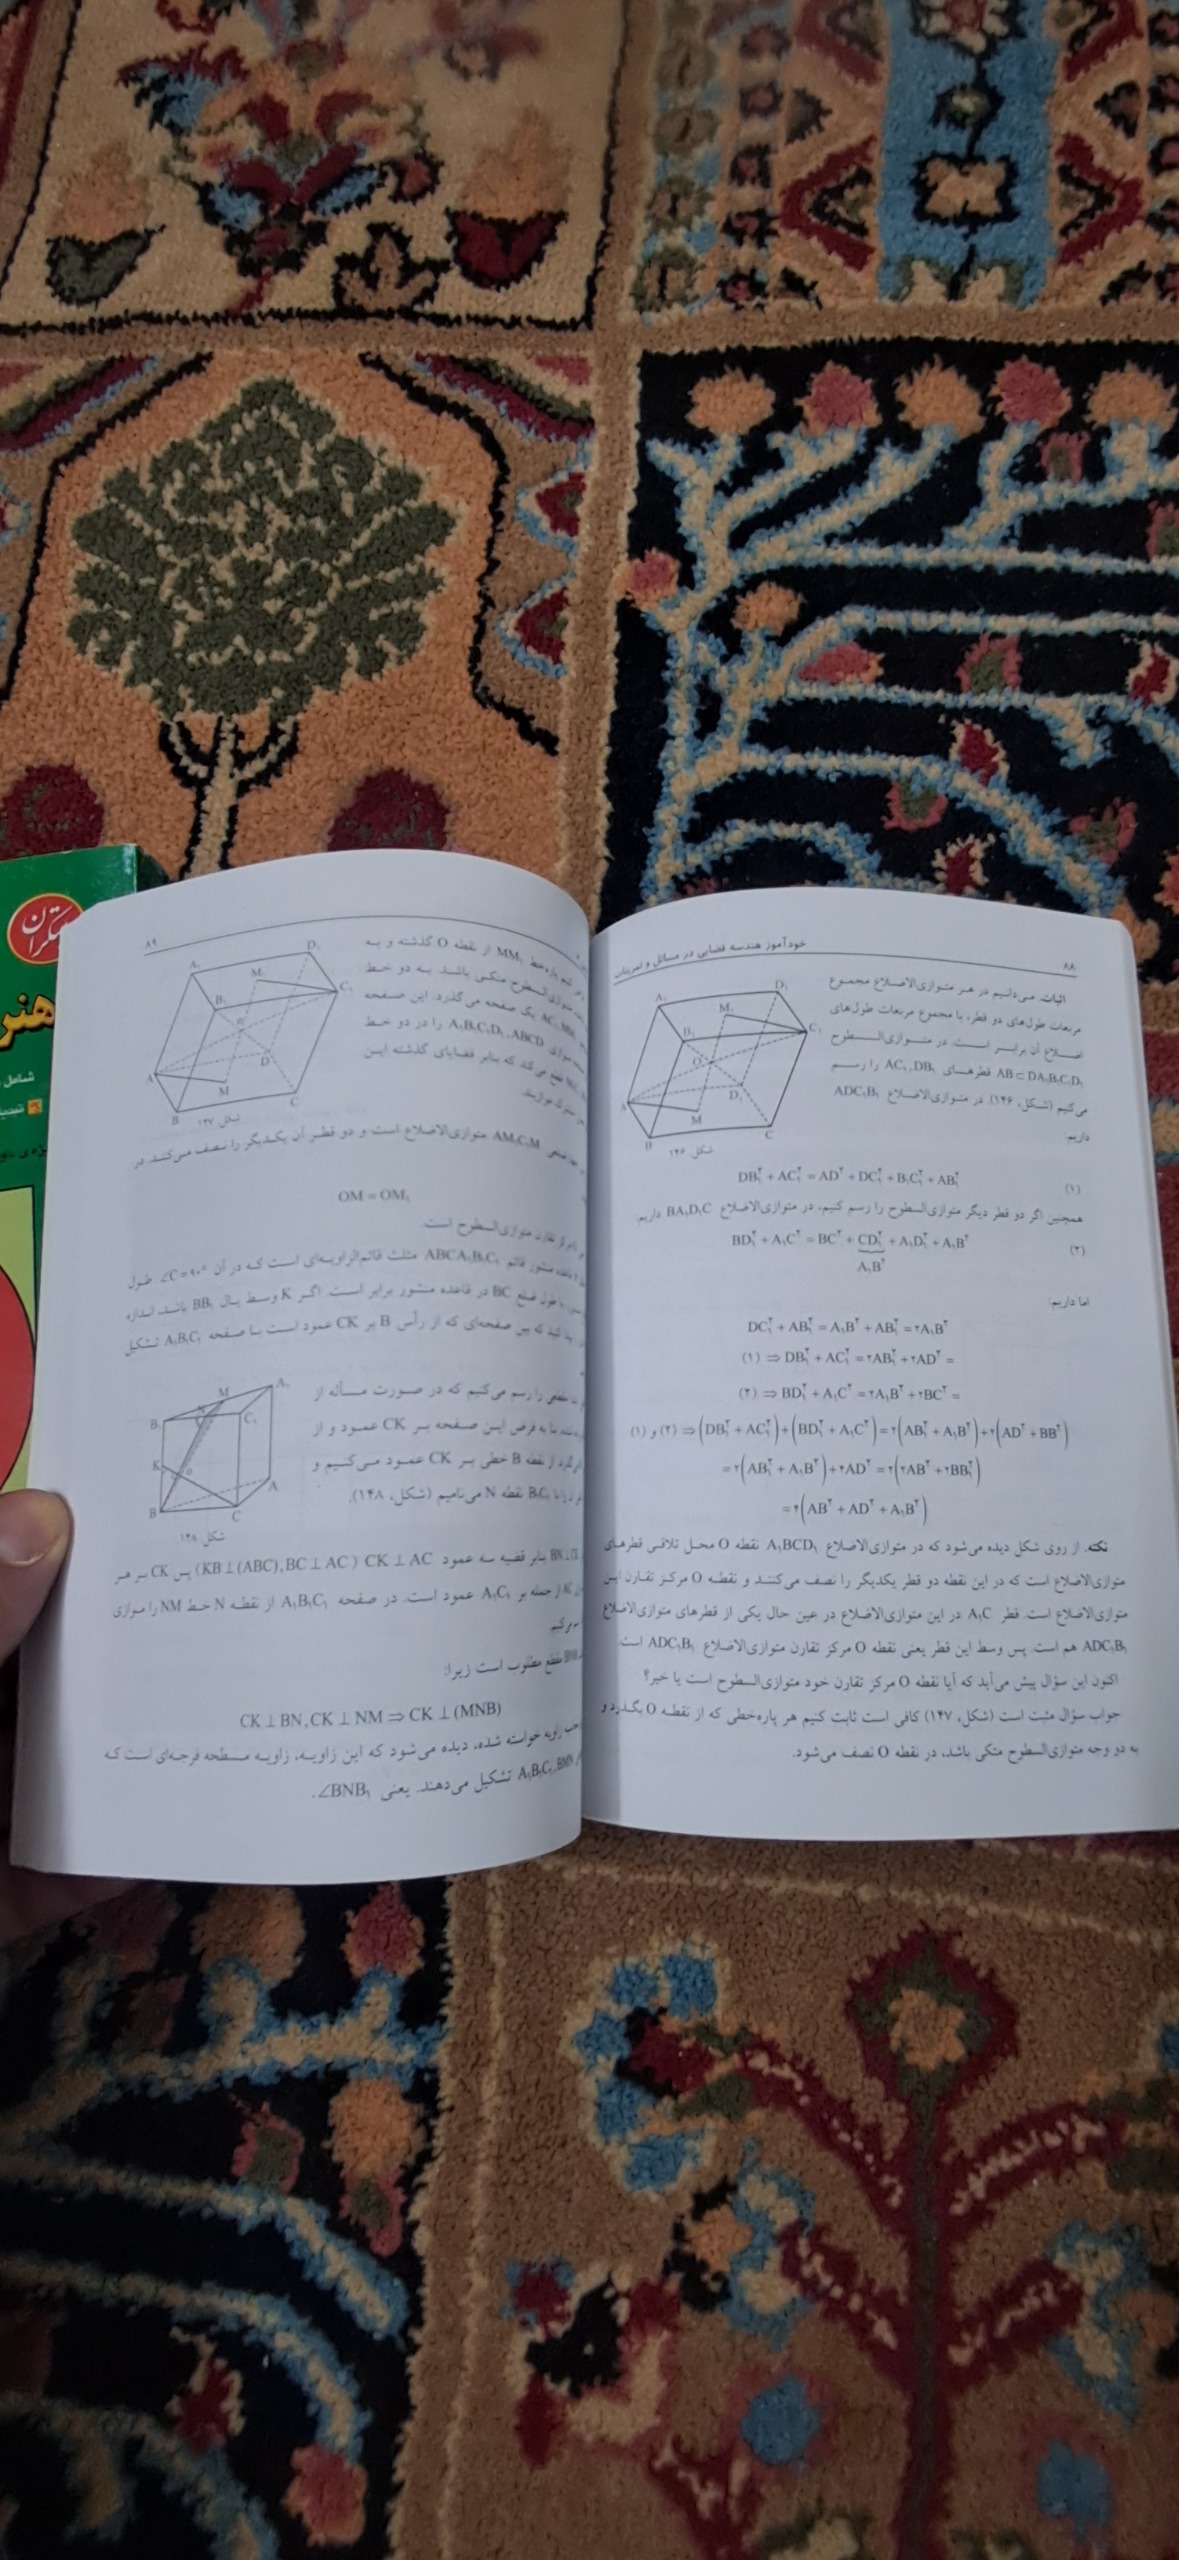 ۸۸
خودآموز هندسه فضایی در مسائل و تمرینات
اثبات. می‌دانیم در هر متوازی‌الاضلاع مجموع
مربعات طول‌های دو قطر، با مجموع مربعات طول‌های
اضلاع آن برابر است. در متوازی‌السطوح
قطرهای AC₁, DB₁ را رسم
می‌کنیم (شکل، ۱۴۶). در متوازی‌الاضلاع ADC₁B₁
داریم:
شکل ۱۴۶
DB₁² + AC₁² = AD² + DC₁² + B₁C₁² + AB₁² (۱)
همچنین اگر دو قطر دیگر متوازی‌السطوح را رسم کنیم، در متوازی‌الاضلاع BA₁D₁C داریم:
BD₁² + A₁C² = BC² + CD₁² + A₁D₁² + A₁B² (۲)
A₁B²
اما داریم:
DC₁² + AB₁² = A₁B² + AB₁² = ۲A₁B²
(۱) ⇒ DB₁² + AC₁² = ۲AB₁² + ۲AD² =
(۲) ⇒ BD₁² + A₁C² = ۲A₁B² + ۲BC² =
(۱) و (۲) ⇒ (DB₁² + AC₁²) + (BD₁² + A₁C²) = ۲(AB₁² + A₁B²) + ۲(AD² + BB²)
= ۲(AB₁² + A₁B²) + ۴AD² = ۲(۲AB² + ۲BB₁²)
= ۴(AB² + AD² + A₁B²)
نکته. از روی شکل دیده می‌شود که در متوازی‌الاضلاع A₁BCD₁ نقطه O محل تلاقی قطرهای
متوازی‌الاضلاع است که در این نقطه دو قطر یکدیگر را نصف می‌کنند و نقطه O مرکز تقارن این
متوازی‌الاضلاع است. قطر A₁C در این متوازی‌الاضلاع در عین حال یکی از قطرهای متوازی‌الاضلاع
ADC₁B₁ هم است. پس وسط این قطر یعنی نقطه O مرکز تقارن متوازی‌الاضلاع ADC₁B₁ است.
اکنون این سؤال پیش می‌آید که آیا نقطه O مرکز تقارن خود متوازی‌السطوح است یا خیر؟
جواب سؤال مثبت است (شکل، ۱۴۷) کافی است ثابت کنیم هر پاره‌خطی که از نقطه O بگذرد و
به دو وجه متوازی‌السطوح متکی باشد، در نقطه O نصف می‌شود.
۸۹
پاره‌خط MM₁ از نقطه O گذشته و به
متوازی‌السطوح متکی باشد. به دو خط
AC₁, MM₁ یک صفحه می‌گذرد. این صفحه
موازی A₁B₁C₁D₁, ABCD را در دو خط
قطع می‌کند که بنابر قضایای گذشته این
موازیند.
شکل ۱۴۷
AM₁C₁M متوازی‌الاضلاع است و دو قطر آن یکدیگر را نصف می‌کنند. در
OM = OM₁
مرکز تقارن متوازی‌السطوح است.
قاعده منشور قائم ABCA₁B₁C₁ مثلث قائم‌الزاویه‌ای است که در آن ∠C=۹۰° طول
با طول ضلع BC در قاعده منشور برابر است. اگر K وسط یال BB₁ باشد، اندازه
کنید که بین صفحه‌ای که از رأس B بر CK عمود است با صفحه A₁B₁C₁ تشکیل
مقطعی را رسم می‌کنیم که در صورت مسأله از
بنا به فرض این صفحه بر CK عمود و از
از نقطه B خطی بر CK عمود می‌کنیم و
B₁C₁ نقطه N می‌نامیم (شکل، ۱۴۸).
شکل ۱۴۸
BN⊥CK بنابر قضیه سه عمود CK ⊥ AC (KB ⊥ (ABC), BC ⊥ AC) پس CK بر هر
از جمله بر A₁C₁ عمود است. در صفحه A₁B₁C₁ از نقطه N خط NM را موازی
می‌کنیم
مقطع مطلوب است زیرا:
CK ⊥ BN, CK ⊥ NM ⇒ CK ⊥ (MNB)
زاویه خواسته شده، دیده می‌شود که این زاویه، زاویه مسطحه فرجه‌ای است که
A₁B₁C₁, BMN تشکیل می‌دهند. یعنی ∠BNB₁.